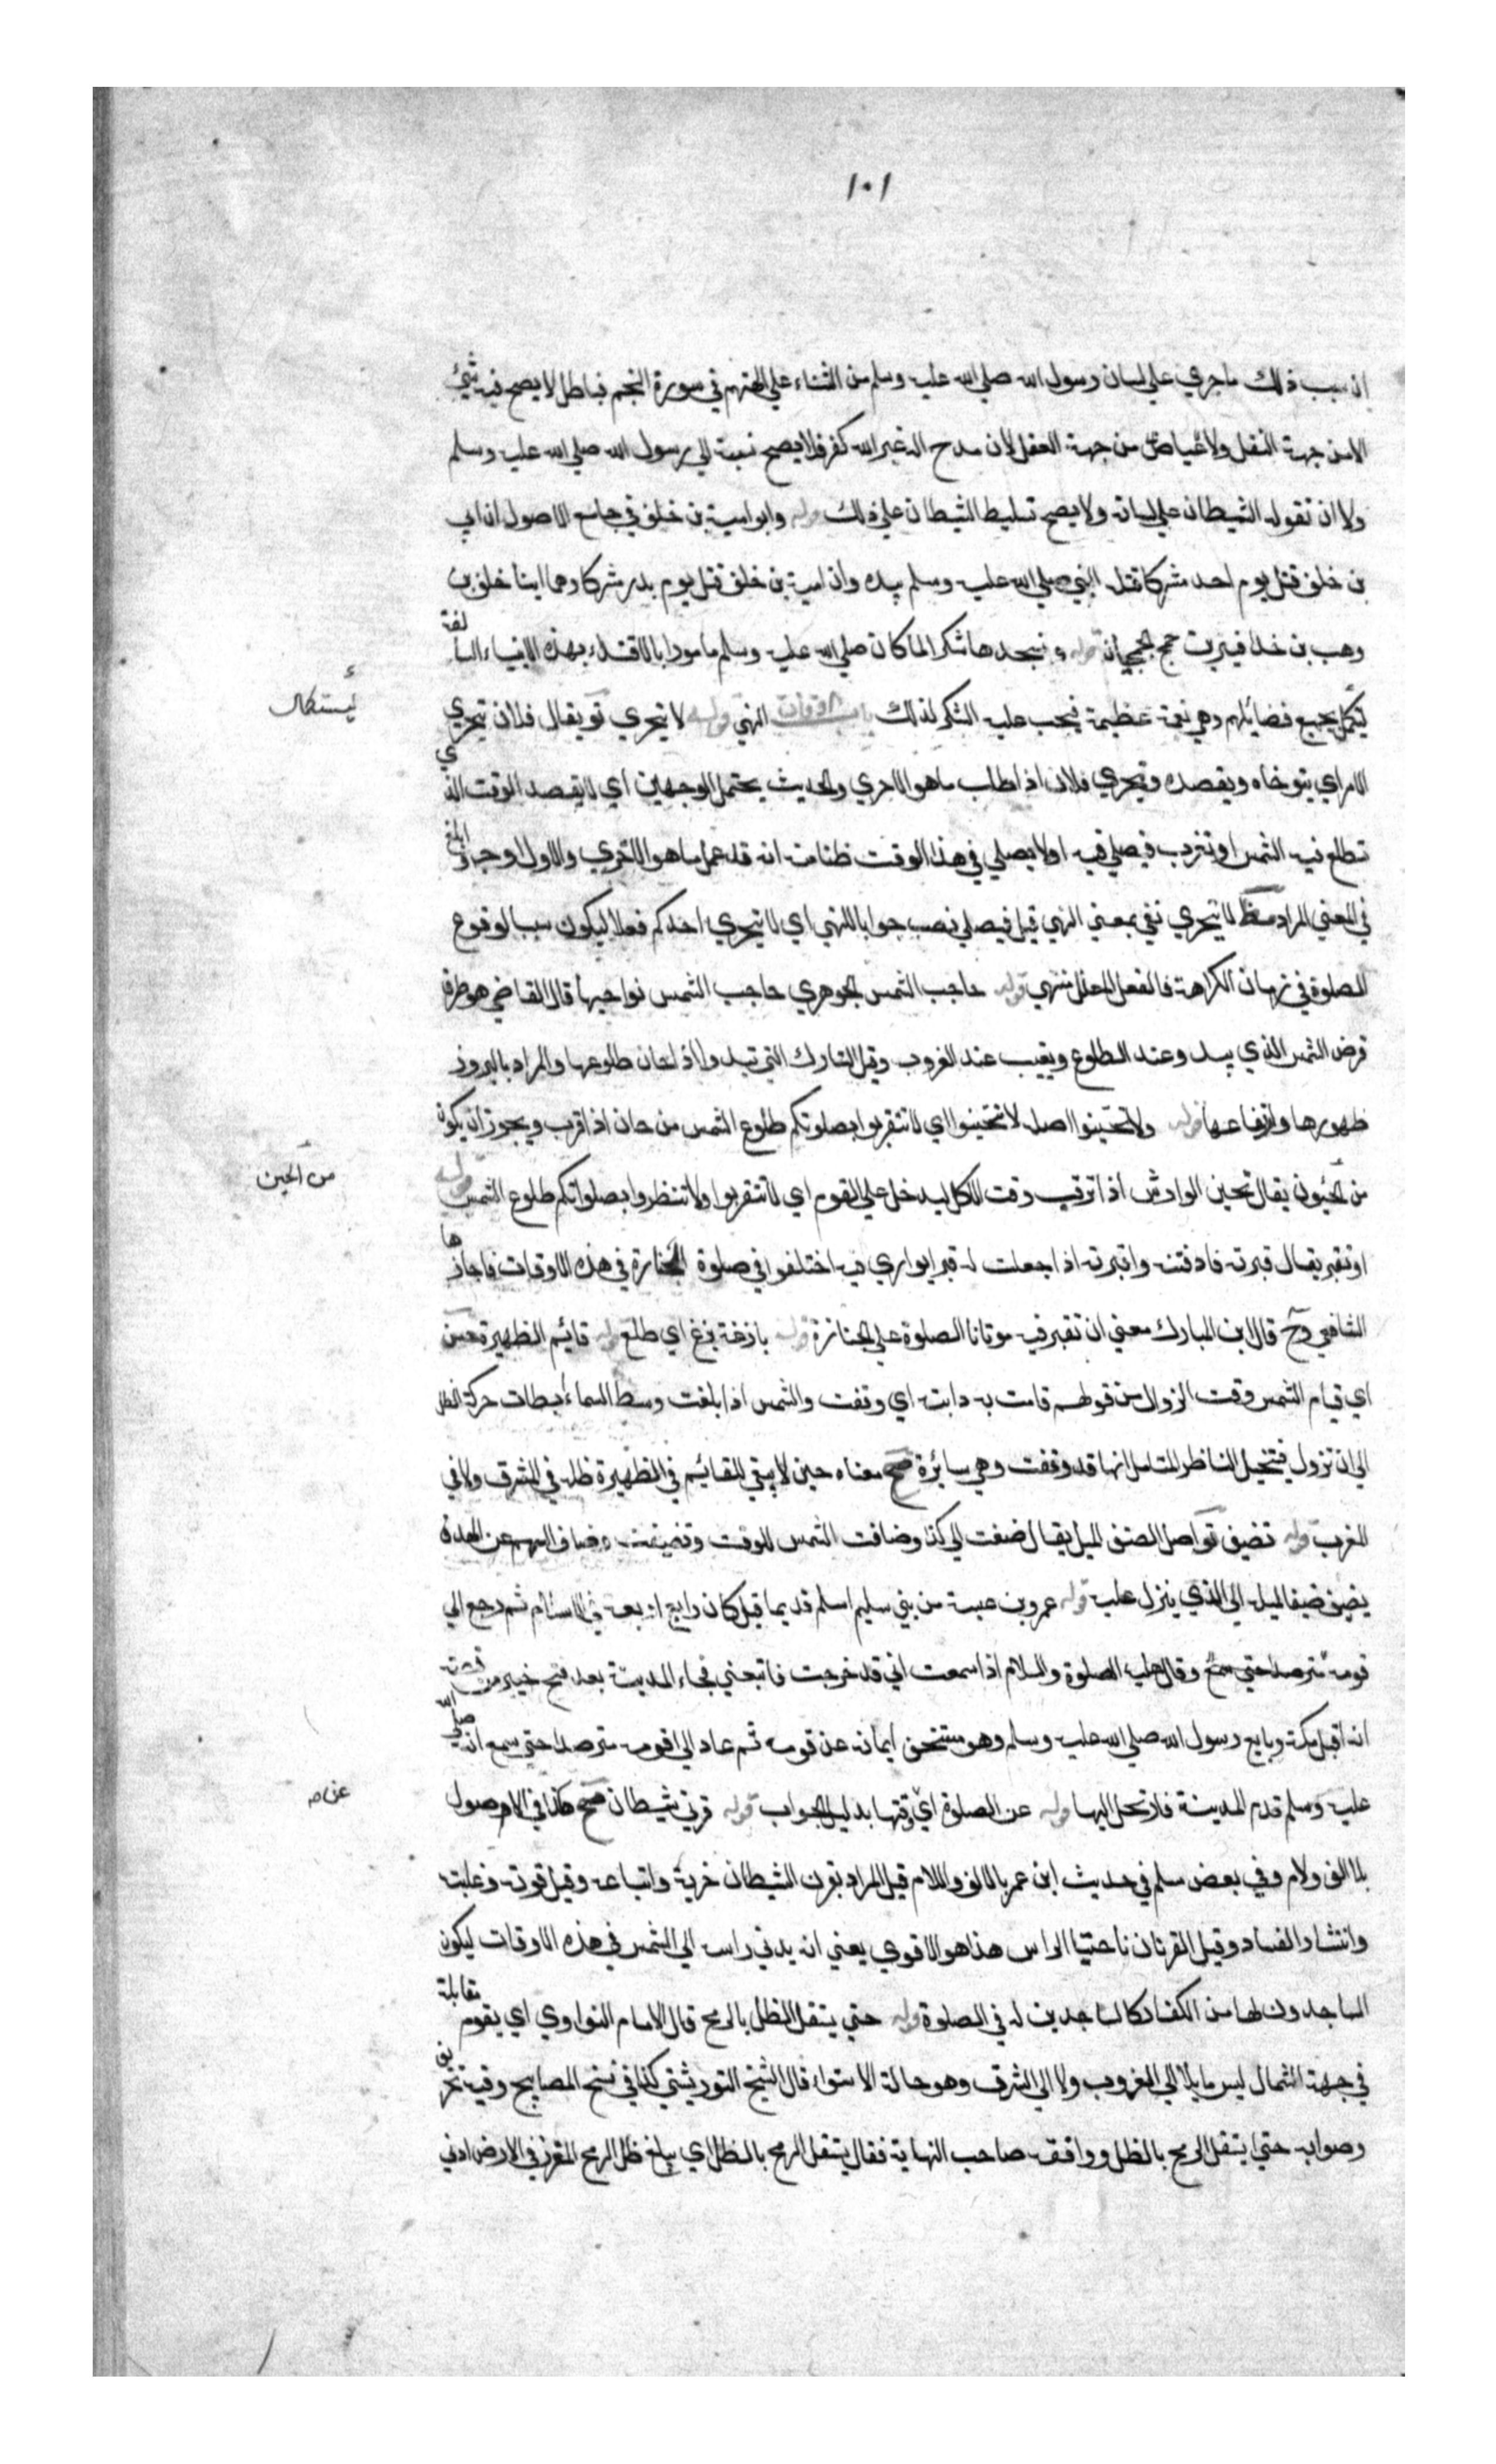 ١٠١
ان سبب ذلك ما جري علي لسان رسول الله صلي الله عليه وسلم من الثناء علي الهتهم في سورة النجم فباطل لا يصح فيه شئ
لا من جهة النقل ولا من جهة العقل لان مدح اله غير الله كفر فلا يصح نسبة الي رسول الله صلي الله عليه وسلم
ولا ان تقوله الشيطان علي لسانه ولا يصح تسليط الشيطان علي ذلك قوله وابو امية بن خلف في جامع الاصول ان ابي
بن خلف قتل يوم احد مشركا قتله النبي صلي الله عليه وسلم بيده وان امية بن خلف قتل يوم بدر مشركا وهما ابنا خلف بن
وهب بن قوله ونسجدها شكرا لما كان صلي الله عليه وسلم مامورا بالاقتداء بهذه الانبياء السالفة
ليستكمل بجميع فضائلهم وهي نعمة عظيمة فيجب عليه الشكر لذلك باب اوقات النهي قوله لا يتحري تو يقال فلان يتحري
ليستكمل
الامر اي يتوخاه ويقصده ويتحري فلان اذا طلب ما هو الاحري والحديث يحتمل الوجهين اي لا يقصد الوقت الذي
تطلع فيه الشمس او تغرب فيصلي فيه اولا يصلي في هذا الوقت ظنا منه انه قد عمل ما هو الاحري والاول اوجه وابلغ
في المعني المراد مظ لا يتحري نفي بمعني النهي قيل فيصلي نصب جوابا للنهي اي لا يتحري احدكم فعلا ليكون سببا لوقوع
الصلوة في زمان الكراهة فالفعل المعلل منهي قوله حاجب الشمس الجوهري حاجب الشمس نواحيها قال القاضي هو طرف
قرص الشمس الذي يبدو عند الطلوع ويغيب عند الغروب وقيل النيازك التي تبدو اذا حان طلوعها والمراد بالبروز
ظهورها وارتفاعها قوله ولا تحينوا اصله لا تتحينوا اي لا تتقربوا بصلوتكم طلوع الشمس من حان اذا قرب ويجوز ان يكون
من الحين يقال تحين الوارش اذا ترقب وقت الاكل ليدخل علي القوم اي لا تتقربوا ولا تنظروا بصلواتكم طلوع الشمس قوله
من الحين
او نقبر يقال قبرته فادفنته واقبرته اذا جعلت له قبرا يواري فيه اختلفوا في صلوة الجنازة في هذه الاوقات فاجازها
الشافعي رح قال ابن المبارك معني ان نقبر فيه موتانا الصلوة علي الجنازة قوله بازغة بزغ اي طلع قوله قائم الظهيرة حسن
اي قيام الشمس وقت الزوال من قولهم قامت به دابته اي وقفت والشمس اذا بلغت وسط السماء ابطات حركة الظل
الي ان تزول فيتخيل الناظر المتامل انها قد وقفت وهي سائرة مح معناه حين لا يبقي للقائم في الظهيرة ظل في المشرق ولا في
المغرب قوله تضيف تو اصل الضيف الميل يقال ضفت الي كذا وضافت الشمس للغروب وتضيفت وضاف السهم عن الهدف
يضيف ضيفا لميله الي الذي ينزل عليه قوله عمرو بن عبسة من بني سليم اسلم قديما قيل كان رابع اربعة في الاسلام ثم رجع الي
قومه مترصدا حتي سمع وقال عليه الصلوة والسلام اذا سمعت اني قد خرجت فاتبعني فجاء المدينة بعد فتح خيبر من قصته
انه اقبل مكة وبايع رسول الله صلي الله عليه وسلم وهو مستخف ايمانه عن قومه ثم عاد الي قومه مترصدا حتي سمع انه صلي الله
عليه وسلم قدم المدينة فارتحل اليها قوله عن الصلوة اي وقتها بدليل الجواب قوله قرني شيطان مح هكذا في الاصول
بلا الف ولام وفي بعض مسلم في حديث ابن عمر بالالف واللام قيل المراد بقرن الشيطان حزبه واتباعه وقيل قوته وغلبته
وانتشار الفساد وقيل القرنان ناحيتا الراس هذا هو الاقوي يعني انه يدني راسه الي الشمس في هذه الاوقات ليكون
الساجدون لها من الكفار كالساجدين له في الصلوة قوله حتي يستقل الظل بالرمح قال الامام النواوي اي يقوم مقابله
في جهة الشمال ليس مايلا الي المغرب ولا الي المشرق وهو حالة الاستواء قال الشيخ التوربشتي كذا في نسخ المصابيح وفيه تحريف
وصوابه حتي يستقل الرمح بالظل ووافقه صاحب النهاية فقال يستقل الرمح بالظل اي يبلغ ظل الرمح المغرز في الارض ادني